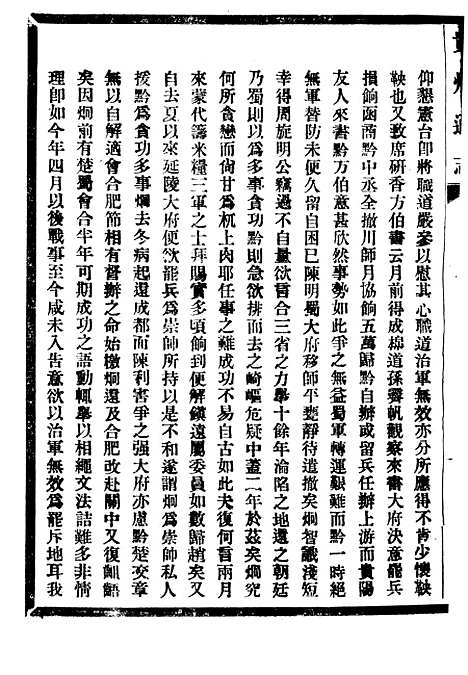 貴州通志
仰懇憲台卽將職道嚴參以慰其心職道治軍無效亦分所應得不肯少懷鞅
鞅也又致席研香方伯書云月前得成綿道孫霽帆觀察來書大府決意罷兵
捐餉函商黔中丞全撤川師月協餉五萬歸黔自辦或留兵任辦上游而貴陽
友人來書黔方伯意甚欣然事勢如此爭之無益蜀軍轉運艱難而黔一時絕
無軍替防未便久留自困已陳明蜀大府移師平甕靜待遣撤矣烱智識淺短
幸得周旋明公竊過不自量欲晉合三省之力舉十餘年淪陷之地還之朝廷
乃蜀則以爲多事貪功黔則急欲排而去之崎嶇危疑中蓋二年於茲矣烱究
何所貪戀而尙甘爲杌上肉耶任事之難成功不易自古如此夫復何言兩月
來蒙代籌米糧三軍之士拜賜實多頃餉到便解鎭遠屬委員如數歸趙矣又
自去夏以來延陵大府便欲罷兵爲崇師所持以是不和遂謂烱爲崇師私人
援黔爲貪功多事烱去冬病起還成都面陳利害爭之强大府亦慮黔楚交章
無以自解適會合肥節相有督辦之命始檄烱還及合肥改赴關中又復齟齬
矣因烱前有楚蜀會合半年可期成功之語動輒舉以相繩文法詰難多非情
理卽如今年四月以後戰事至今咸未入告意欲以治軍無效爲罷斥地耳我